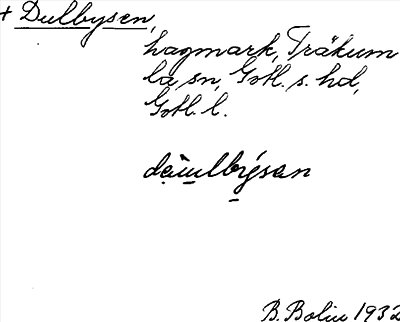 + Dulbysen,
hagmark, Träkum
la, sn, Gotl. s. hd,
Gotl. l.
B. Bolin 1932